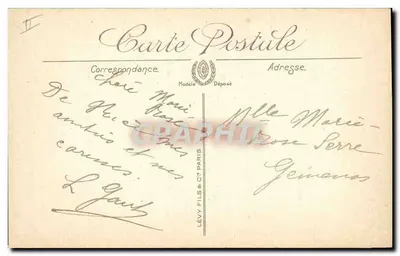 II
Carte Postale
Correspondance
Adresse
Modèle Déposé
Chère Marie
De
amitiés et mes
caresses.
Mlle Marie-
Rose Serre
Gémenos
LÉVY FILS & Cie PARIS
Cartepostale